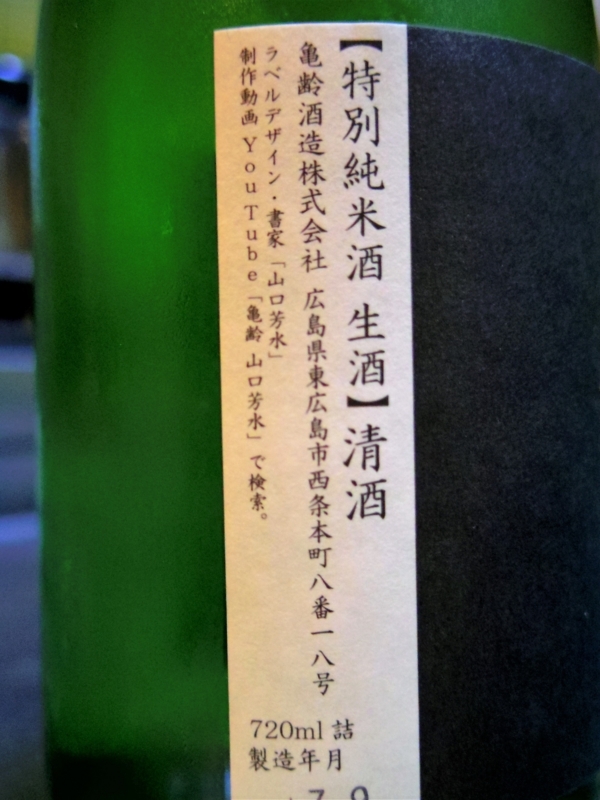 【特別純米酒 生酒】清酒
亀齢酒造株式会社 広島県東広島市西条本町八番一八号
ラベルデザイン・書家「山口芳水」
制作動画 YouTube「亀齢 山口芳水」で検索。
720ml 詰
製造年月